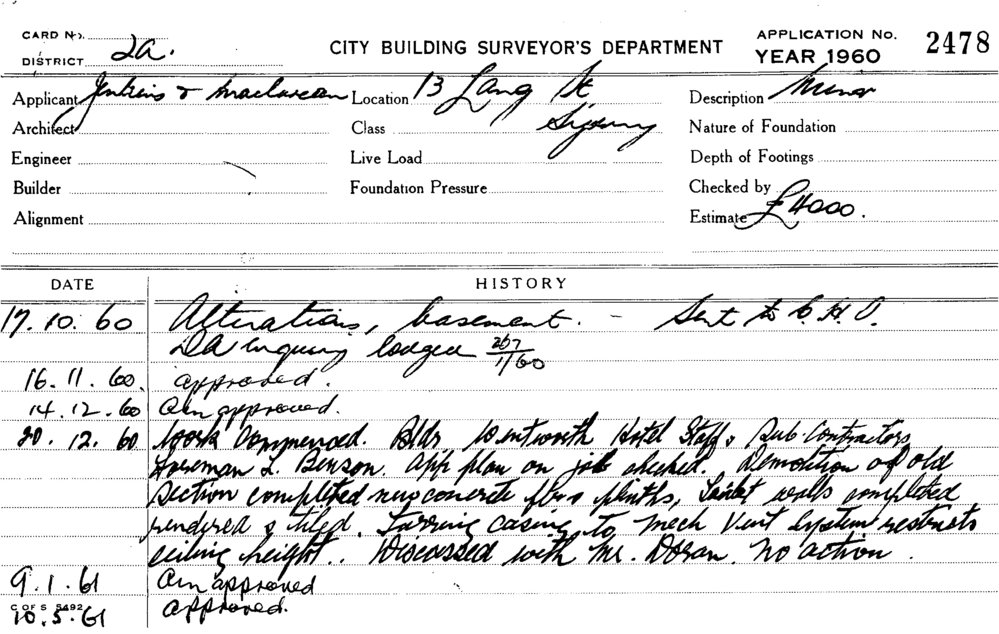 CARD No. CITY BUILDING SURVEYOR'S DEPARTMENT APPLICATION No. 2478
DISTRICT 2a. YEAR 1960
Applicant Jenkins & Maclurcan Location 13 Lang St Description Minor
Architect Class Sydney Nature of Foundation
Engineer Live Load Depth of Footings
Builder Foundation Pressure Checked by
Alignment Estimate £4000.
DATE HISTORY
17.10.60 Alterations, basement. - Sent to C.H.O.
DA enquiry lodged 267/11/60
16.11.60. approved.
14.12.60 Am approved.
20.12.60 Work Commenced. Bldr Wentworth Hotel Staff & Sub-Contractors
Foreman L. Benson. App plan on job checked. Demolition of old
Section completed new concrete flrs & plinths, Toilet walls completed
rendered & tiled. Furring casing to Mech Vent System restricts
ceiling height.. Discussed with Mr. Doran. No action.
9.1.61 Am approved
10.5.61 approved.
C OF S 5492